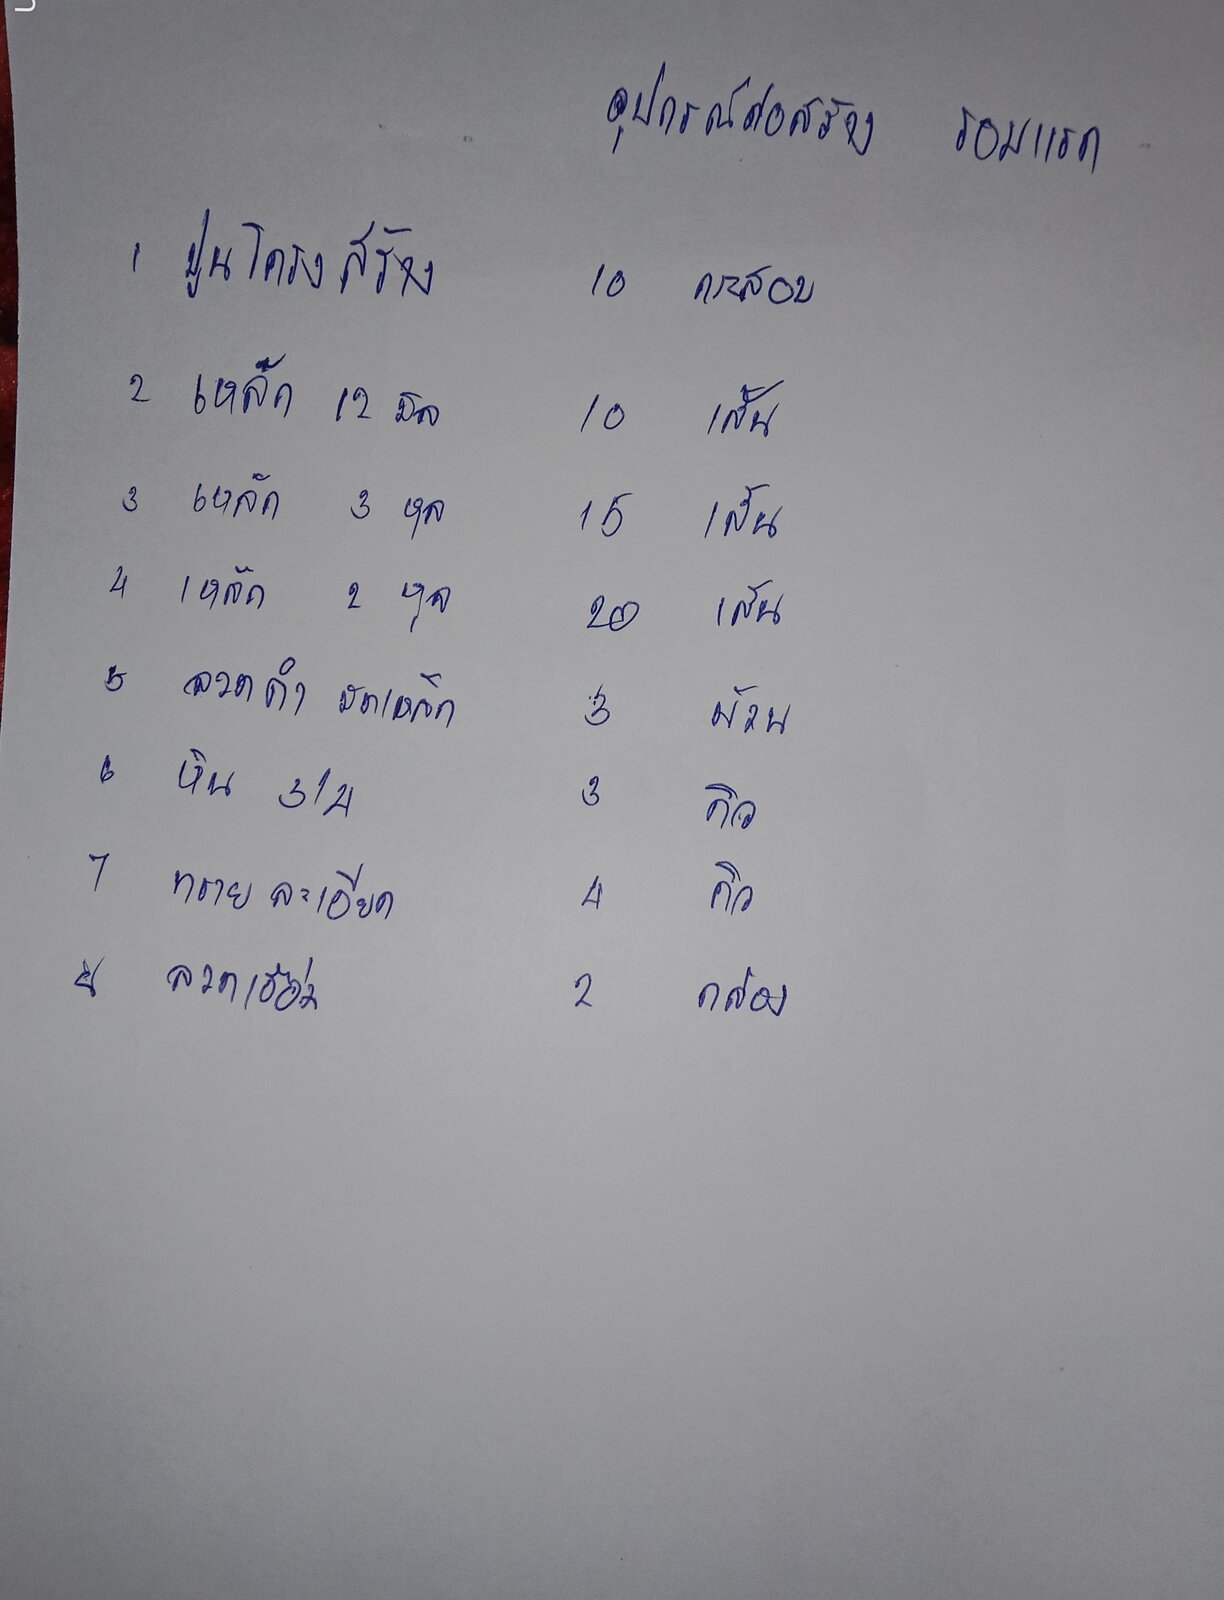 อุปกรณ์ก่อสร้าง รอบแรก
1 ปูนโครงสร้าง 10 กระสอบ
2 เหล็ก 12 มิล 10 เส้น
3 เหล็ก 3 หุล 15 เส้น
4 เหล็ก 2 หุล 20 เส้น
5 ลวดดำ มัดเหล็ก 3 ม้วน
6 หิน 3/4 3 คิว
7 ทราย ละเอียด 4 คิว
8 ลวดเชื่อม 2 กล่อง